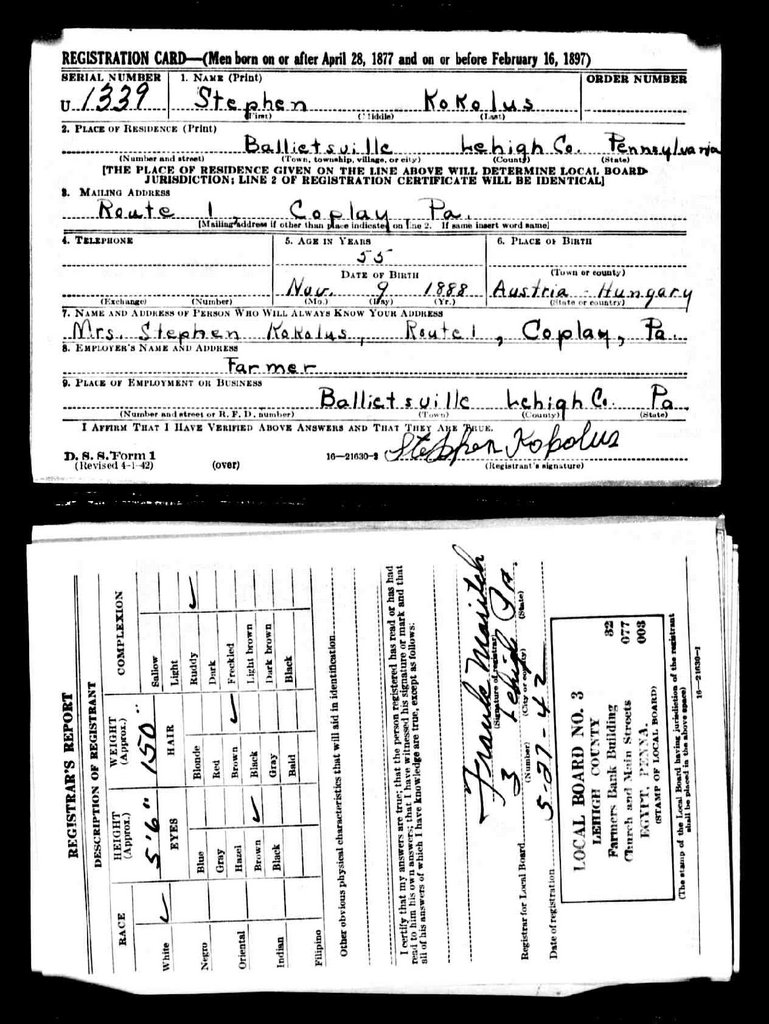 REGISTRATION CARD—(Men born on or after April 28, 1877 and on or before February 16, 1897)
SERIAL NUMBER 1. NAME (Print) ORDER NUMBER
U 1339 Stephen Kokolus
(First) (Middle) (Last)
2. PLACE OF RESIDENCE (Print)
Ballietsville Lehigh Co. Pennsylvania
(Number and street) (Town, township, village, or city) (County) (State)
[THE PLACE OF RESIDENCE GIVEN ON THE LINE ABOVE WILL DETERMINE LOCAL BOARD
JURISDICTION; LINE 2 OF REGISTRATION CERTIFICATE WILL BE IDENTICAL]
3. MAILING ADDRESS
Route 1, Coplay, Pa.
[Mailing address if other than place indicated on line 2. If same insert word same]
4. TELEPHONE 5. AGE IN YEARS 6. PLACE OF BIRTH
55
(Town or county)
DATE OF BIRTH
Nov. 9 1888 Austria-Hungary
(Exchange) (Number) (Mo.) (Day) (Yr.) (State or country)
7. NAME AND ADDRESS OF PERSON WHO WILL ALWAYS KNOW YOUR ADDRESS
Mrs. Stephen Kokolus, Route 1, Coplay, Pa.
8. EMPLOYER'S NAME AND ADDRESS
Farmer
9. PLACE OF EMPLOYMENT OR BUSINESS
Ballietsville Lehigh Co. Pa.
(Number and street or R. F. D. number) (Town) (County) (State)
I AFFIRM THAT I HAVE VERIFIED ABOVE ANSWERS AND THAT THEY ARE TRUE.
Stephen Kokolus
D. S. S. Form 1
(Revised 4-1-42) (over) 16—21630-2 (Registrant's signature)
REGISTRAR'S REPORT
DESCRIPTION OF REGISTRANT
RACE HEIGHT (Approx.) WEIGHT (Approx.) COMPLEXION
5'6" 150
EYES HAIR
White ✓
Negro
Oriental
Indian
Filipino
Blue
Gray
Hazel
Brown ✓
Black
Blonde
Red
Brown ✓
Black
Gray
Bald
Sallow
Light
Ruddy ✓
Dark
Freckled
Light brown
Dark brown
Black
Other obvious physical characteristics that will aid in identification
I certify that my answers are true; that the person registered has read or has had
read to him his own answers; that I have witnessed his signature or mark and that
all of his answers of which I have knowledge are true, except as follows:
Frank
(Signature of registrar)
Registrar for Local Board 3 Lehigh Pa
(Number) (City or county) (State)
Date of registration 5-27-42
LOCAL BOARD NO. 3 32
LEHIGH COUNTY 077
Farmers Bank Building 003
Church and Main Streets
EGYPT, PENNA.
(STAMP OF LOCAL BOARD)
(The stamp of the Local Board having jurisdiction of the registrant
shall be placed in the above space)
16—21630-1